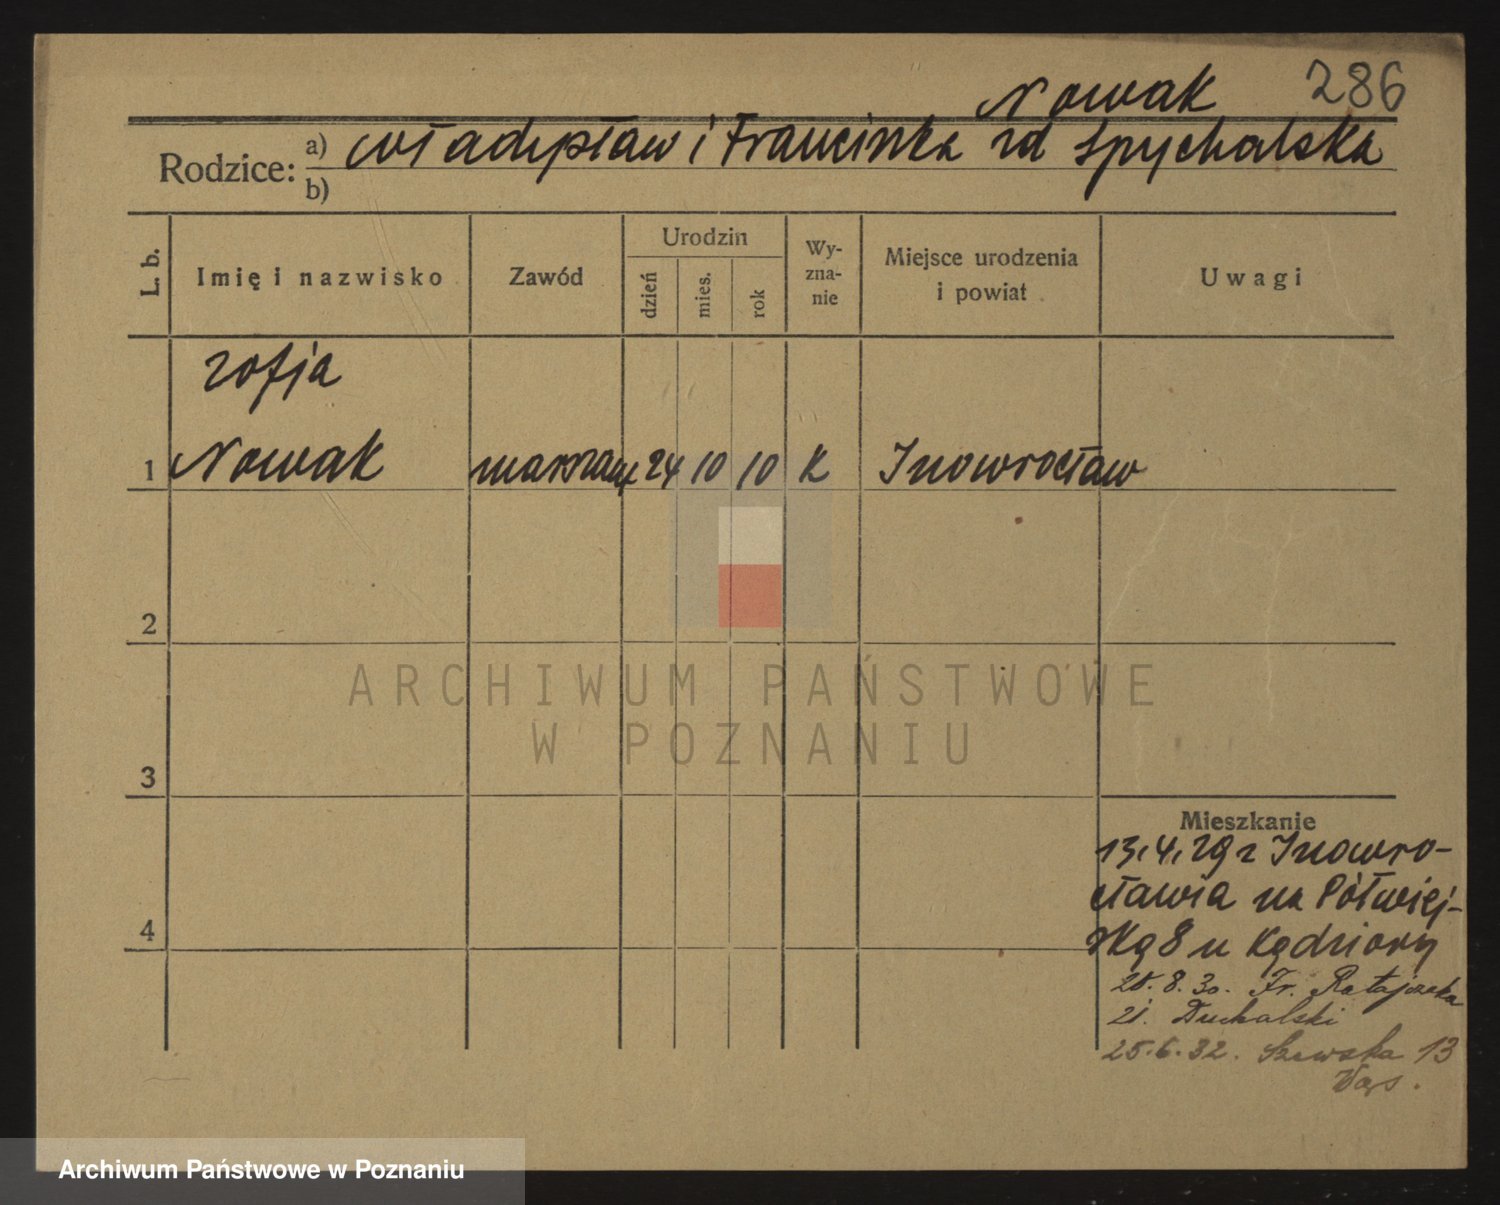 286
Nowak
Rodzice: a) Władysław i Franciszka zd Spychalska
b)
L. b. Imię i nazwisko Zawód Urodzin dzień mies. rok Wy-zna-nie Miejsce urodzenia i powiat Uwagi
Zofja
1 Nowak 24 10 10 K Inowrocław
2
3
4
Mieszkanie
13.4.29 z Inowro-
cławia na Półwiej-
ską 8 u Kędziory
8.30. Fr. Ratajczaka
21. Duchalski
25.6.32. Szewska 13
ARCHIWUM PAŃSTWOWE
W POZNANIU
Archiwum Państwowe w Poznaniu